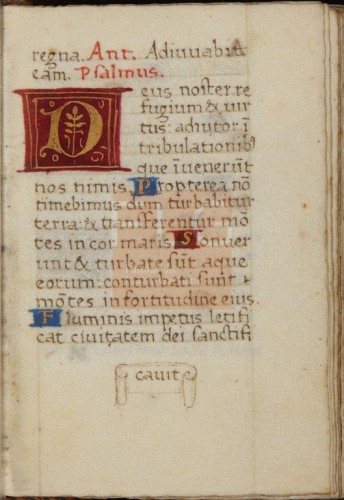 regna. Ant. Adiuuabit
eam. Psalmus.
Deus noster re
fugium & uir
tus: adiutor ī
tribulationib9
que īuenerūt
nos nimis. Propterea nō
timebimus dum turbabitur
terra: & transferentur mō
tes in cor maris. Sonuer
unt & turbate sūt aque
eorum: conturbati sunt
mōtes in fortitudine eius.
Fluminis impetus letifi
cat ciuitatem dei sanctifi
cauit